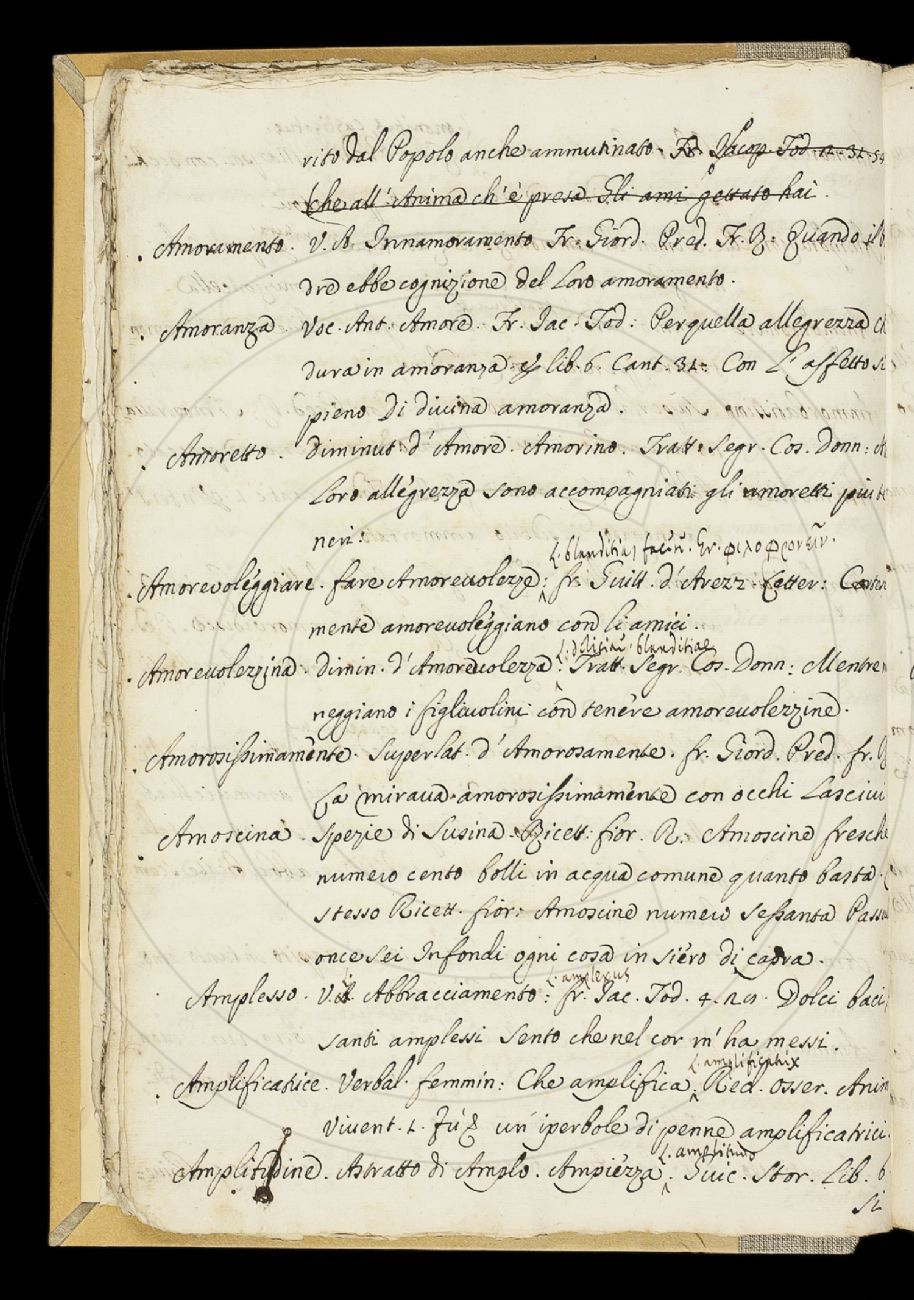 rito dal Popolo anche ammutinato. Fr. Jacop. Tod. 2. 31. 54
che all'Anima ch'è presa Gli ami gettato hai.
Amoramento. V. A. Innamoramento Fr. Giord. Pred. Fr. R. Quando il
dre ebbe cognizione del loro amoramento.
Amoranza Voc. Ant. Amore. Fr. Jac. Tod: Per quella allegrezza
dura in amoranza. lib. 6. Cant. 31: Con l'affetto
pieno Di divina amoranza.
Amoretto. diminut: d'Amore. Amorino. Tratt. Segr. Cos. Donn:
Loro allegrezza sono accompagniati gli amoretti piu te
neri.
L. blanditias facere. Gr. φιλοφρονεῖν.
Amorevoleggiare. fare Amorevolezze: fr. Guitt. d'Arezz. Letter:
mente amorevoleggiano con li amici.
L. delitiae, blanditiae
Amorevolezzina. dimin. d'Amorevolezza: Tratt. Segr. Cos. Donn: Mentre
neggiano i figlivolini con tenere amorevolezzine.
Amorosissimamente. Superlat. d'Amorosamente. fr. Giord. Pred. fr.
La mirava amorosissimamente con occhi Lascivi
Amoscina. Spezie di Susina. Ricett. fior. R: Amoscine fresche
numero cento bolli in acqua comune quanto basta.
stesso Ricett. fior: Amoscine numero sessanta Pass
once sei Infondi ogni cosa in siero di capra.
L. amplexus
Amplesso. V. A. Abbracciamento: fr. Jac. Tod. 4. Dolci baci,
santi amplessi Sento che nel cor m'ha messi.
L. amplificatrix
Amplificatrice. Verbal. femmin: Che amplifica. Red. Osser. Anim
Vivent. 1. Fù un'iperbole di penne amplificatrici.
L. amplitudo
Amplitudine. Astratto di Amplo. Ampiezza. Guic. Stor. Lib. 6
si